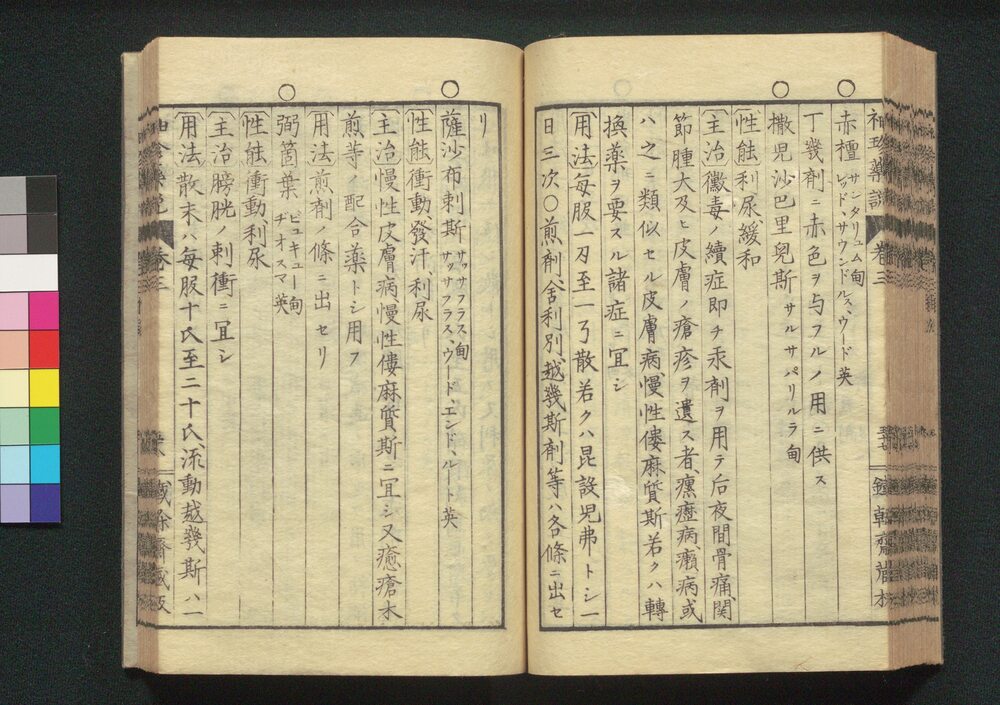 袖珍薬説 巻三
○赤檀 サンタリュム甸 レッド、サウンドルス、ウード英
丁幾剤ニ赤色ヲ与フルノ用ニ供ス
○撒児沙巴里兒斯 サルサパリルラ甸
性能利尿、緩和
主治黴毒ノ續症即チ汞剤ヲ用テ后夜間骨痛、関
節腫大及ヒ皮膚ノ瘡疹ヲ遺ス者、瘰癧病癩病或
ハ之ニ類似セル皮膚病、慢性僂麻質斯若クハ轉
換薬ヲ要スル諸症ニ宜シ
用法毎服一刃至一弓散若クハ昆設児弗トシ一
日三次○煎剤、舎利別、越幾斯剤等ハ各條ニ出セ
リ
○薩沙布剌斯 サッサフラス甸 サッサフラス、ウード、エンド、ルート英
性能衝動、發汗、利尿
主治慢性皮膚病、慢性僂麻質斯ニ宜シ又癒瘡木
煎等ノ配合薬トシ用フ
用法煎剤ノ條ニ出セリ
○弼箇葉 ビュキュー甸 ヂオスマ英
性能衝動利尿
主治膀胱ノ刺衝ニ宜シ
用法散末ハ毎服十氏至二十氏流動越幾斯ハ一
巻三